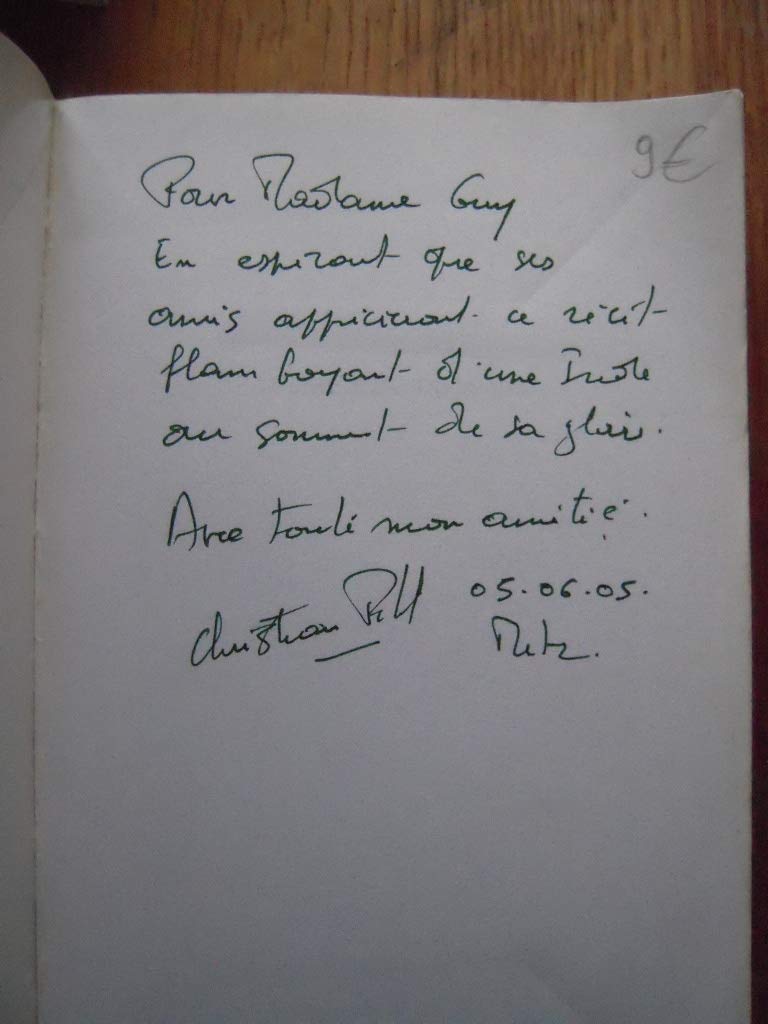 9€
Pour Madame Guy
En espérant que ses
amis apprécieront ce récit
flamboyant d'une Inde
au sommet de sa gloire.
Avec toute mon amitié.
Christian Petit 05.06.05.
Metz.